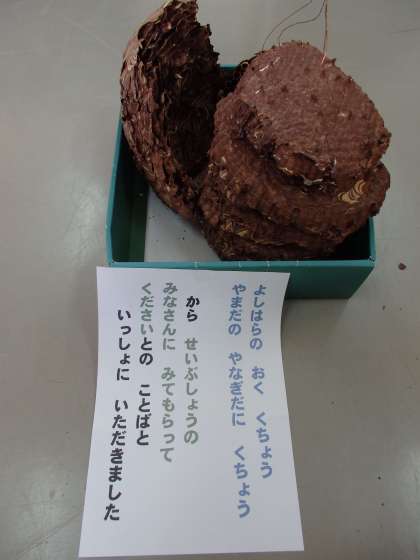 よしはらの　おく　くちょう
やまだの　やなぎだに　くちょう
から　せいぶしょうの
みなさんに　みてもらって
くださいとの　ことばと
いっしょに　いただきました